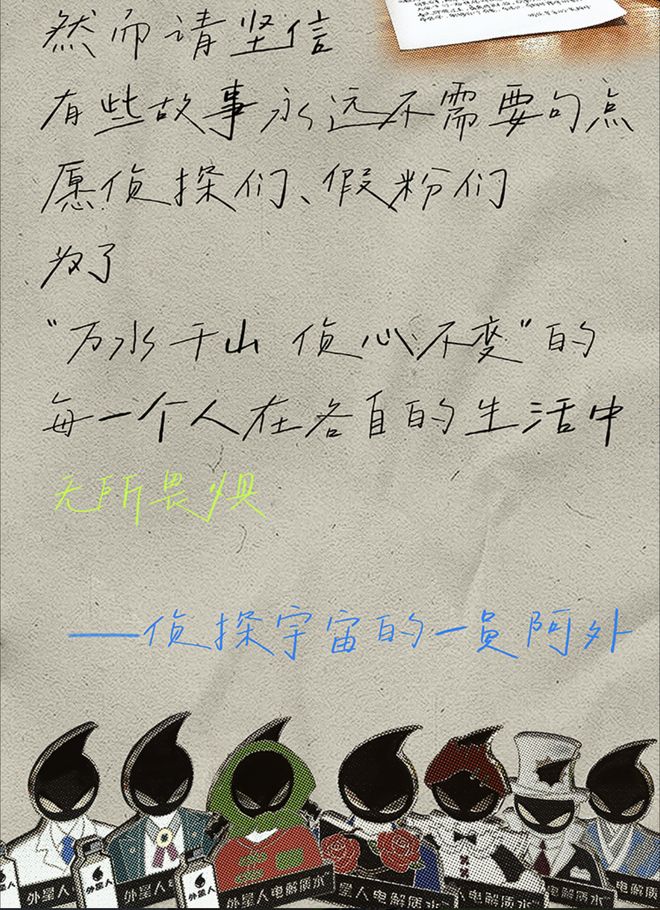 然而请坚信
有些故事永远不需要句点
愿侦探们、假粉们
为了
“万水千山 侦心不变”的
每一个人在各自的生活中
无所畏惧
——侦探宇宙的一员阿外
外星人电解质水
外星人电解质水
外星人电解质水
星人电解质水
人电解质水
电解质水